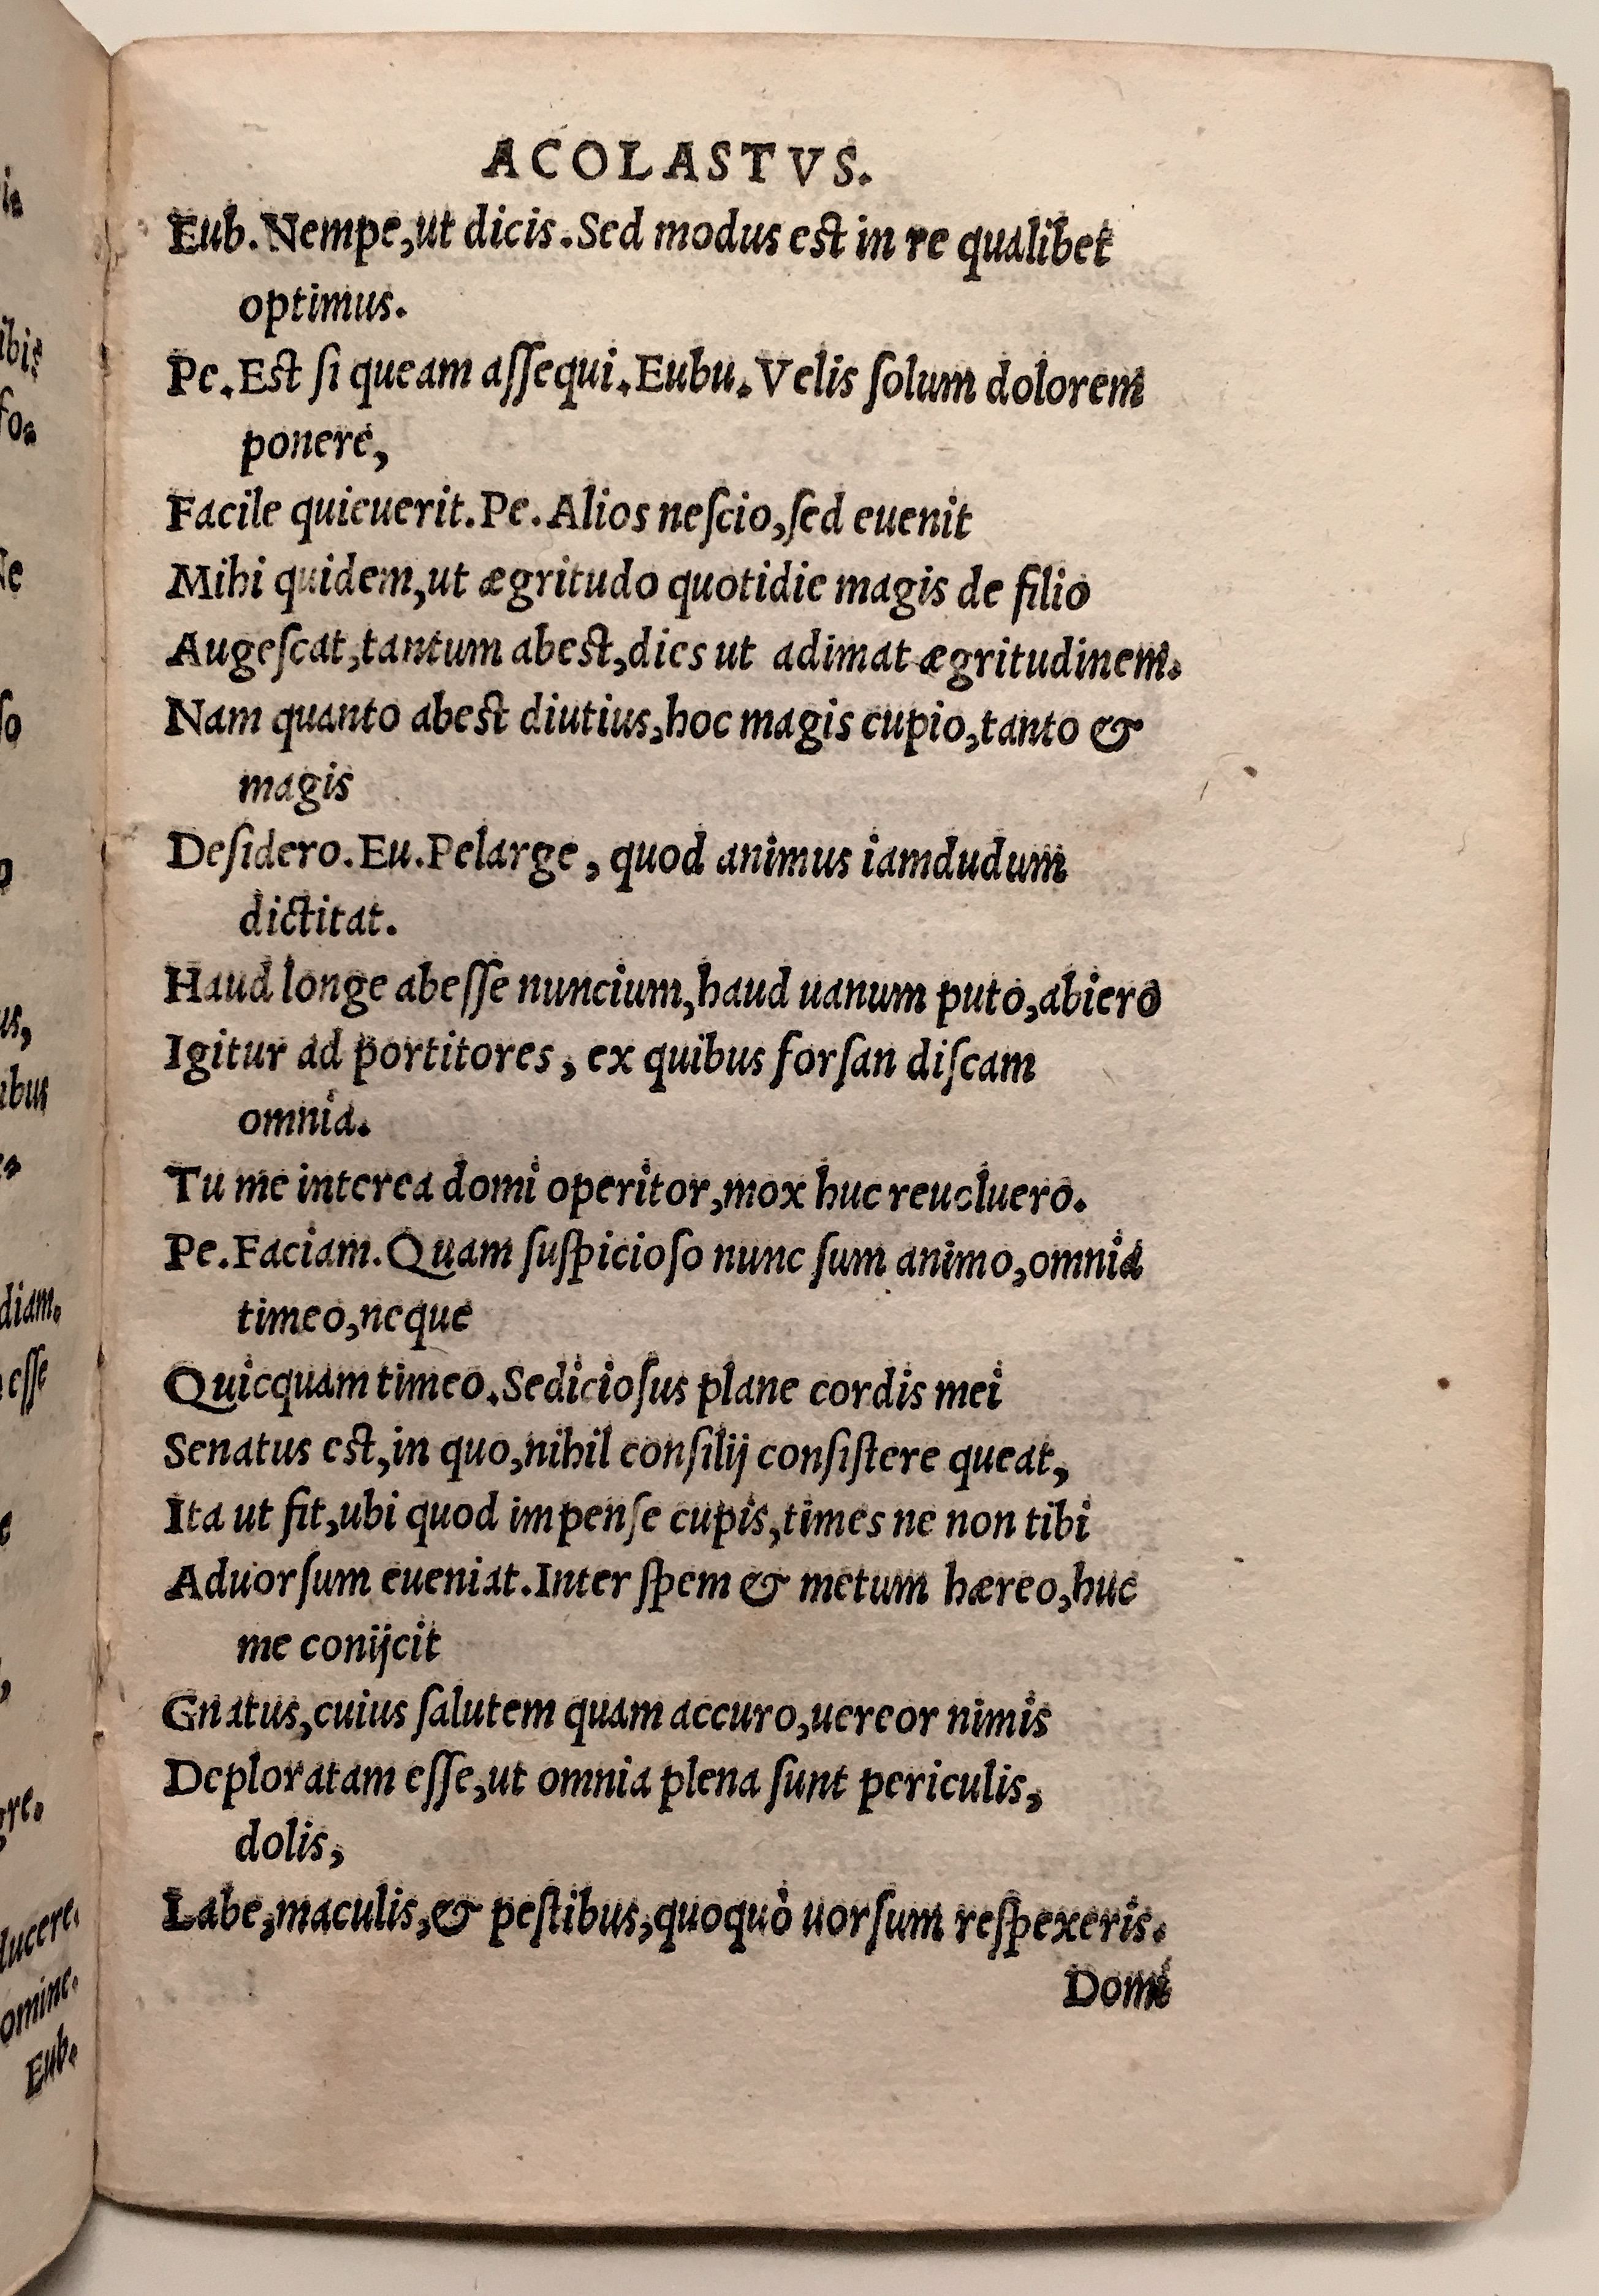 ACOLASTVS.
Eub. Nempe, ut dicis. Sed modus est in re qualibet
optimus.
Pe. Est ſi queam aſſequi. Eubu. Velis ſolum dolorem
ponere,
Facile quieuerit. Pe. Alios neſcio, ſed euenit
Mihi quidem, ut ægritudo quotidie magis de filio
Augeſcat, tantum abest, dies ut adimat ægritudinem.
Nam quanto abest diutius, hoc magis cupio, tanto &
magis
Deſidero. Eu. Pelarge, quod animus iamdudum
dictitat.
Haud longe abeſſe nuncium, haud uanum puto, abiero
Igitur ad portitores, ex quibus forſan diſcam
omnia.
Tu me interea domi operitor, mox huc reuoluero.
Pe. Faciam. Quam ſuſpicioſo nunc ſum animo, omnia
timeo, neque
Quicquam timeo. Sedicioſus plane cordis mei
Senatus est, in quo, nihil conſilij conſiſtere queat,
Ita ut fit, ubi quod impenſe cupis, times ne non tibi
Aduorſum eueniat. Inter ſpem & metum hæreo, huc
me conijcit
Gnatus, cuius ſalutem quam accuro, uereor nimis
Deploratam eſſe, ut omnia plena ſunt periculis,
dolis,
Labe, maculis, & peſtibus, quoquò uorſum reſpexeris.
Domi
ibis
ibus
diam.
eſſe
ducere.
omine.
Eub.